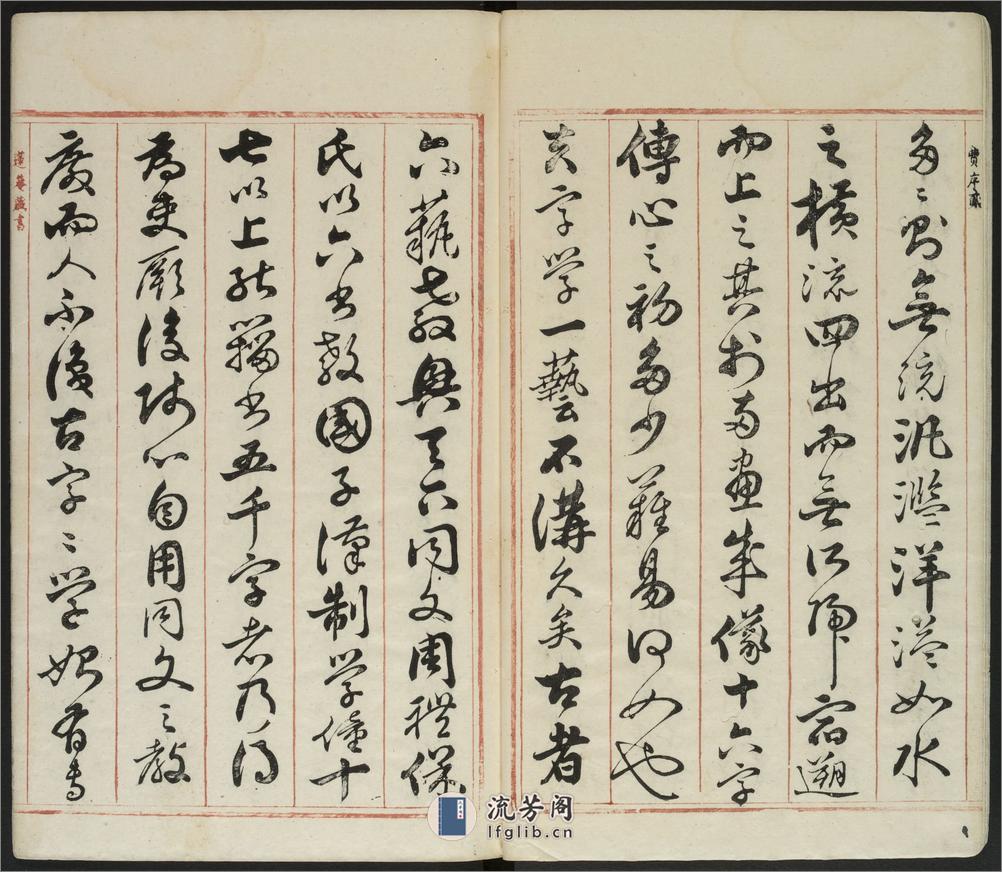 多〻則無統汎濫洋溢如水
之橫流四出而無所歸宿遡
而上之其於兩畫成儀十六字
傳心之初多少難易何如也
夫字學一藝不講久矣古者
六藝之教與天下同文周禮保
氏以六書教國子漢制學僮十
七以上能籀書五千字者乃得
為吏厥後師心自用同文之教
廢而人不復古字〻學始有專
蓮菴藏書
流芳阁
lfglib.cn